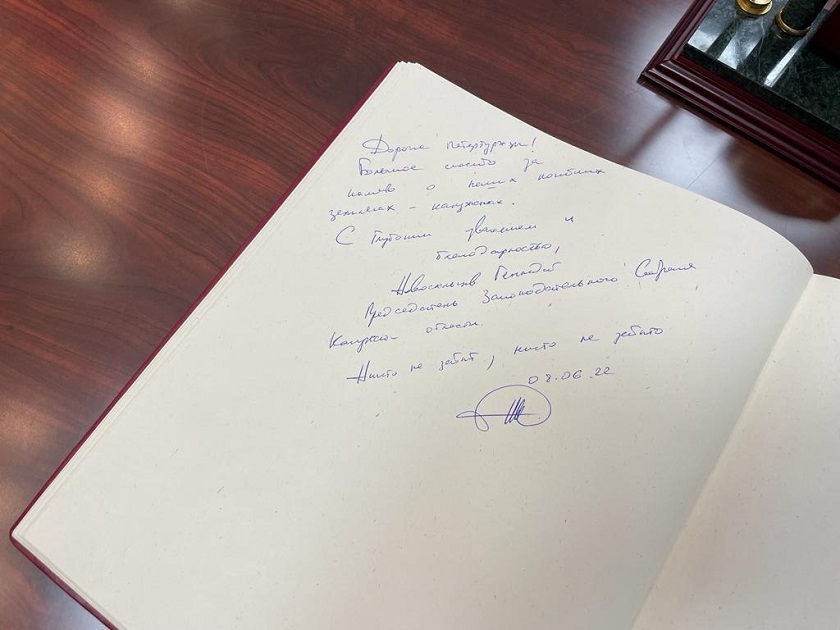 Дорогие Петербуржцы!
Большое спасибо за
память о наших погибших
земляках - калужанах.
С глубоким уважением и
благодарностью,
Новосельцев Геннадий
Председатель Законодательного Собрания
Калужской области.
Никто не забыт, ничто не забыто
08.06.22